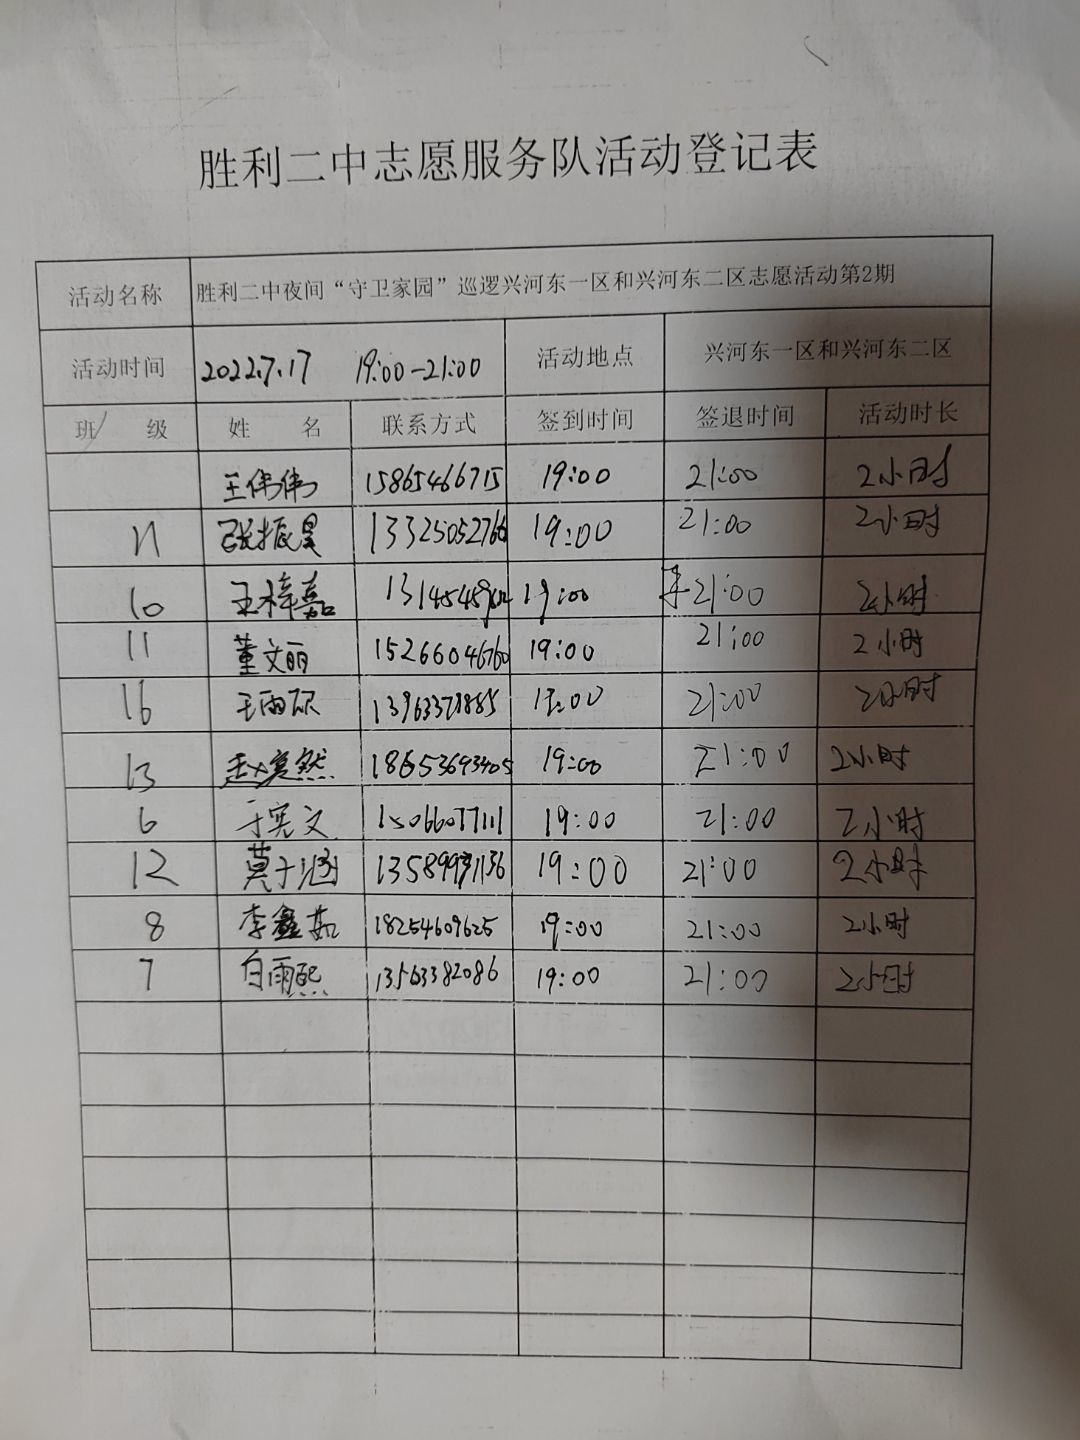 胜利二中志愿服务队活动登记表
活动名称 胜利二中夜间“守卫家园”巡逻兴河东一区和兴河东二区志愿活动第2期
活动时间 2022.7.17 19:00-21:00 活动地点 兴河东一区和兴河东二区
班 级 姓 名 联系方式 签到时间 签退时间 活动时长
王伟伟 15865466715 19:00 21:00 2小时
11 张振昊 13325052766 19:00 21:00 2小时
10 王梓嘉 19:00 21:00 2小时
11 董文丽 15266046760 19:00 21:00 2小时
16 王雨 19:00 21:00 2小时
13 赵奕然 18653693405 19:00 21:00 2小时
6 于宪文 15066077111 19:00 21:00 2小时
12 莫子涵 19:00 21:00 2小时
8 李鑫茹 18254609625 19:00 21:00 2小时
7 白雨熙 13563382086 19:00 21:00 2小时